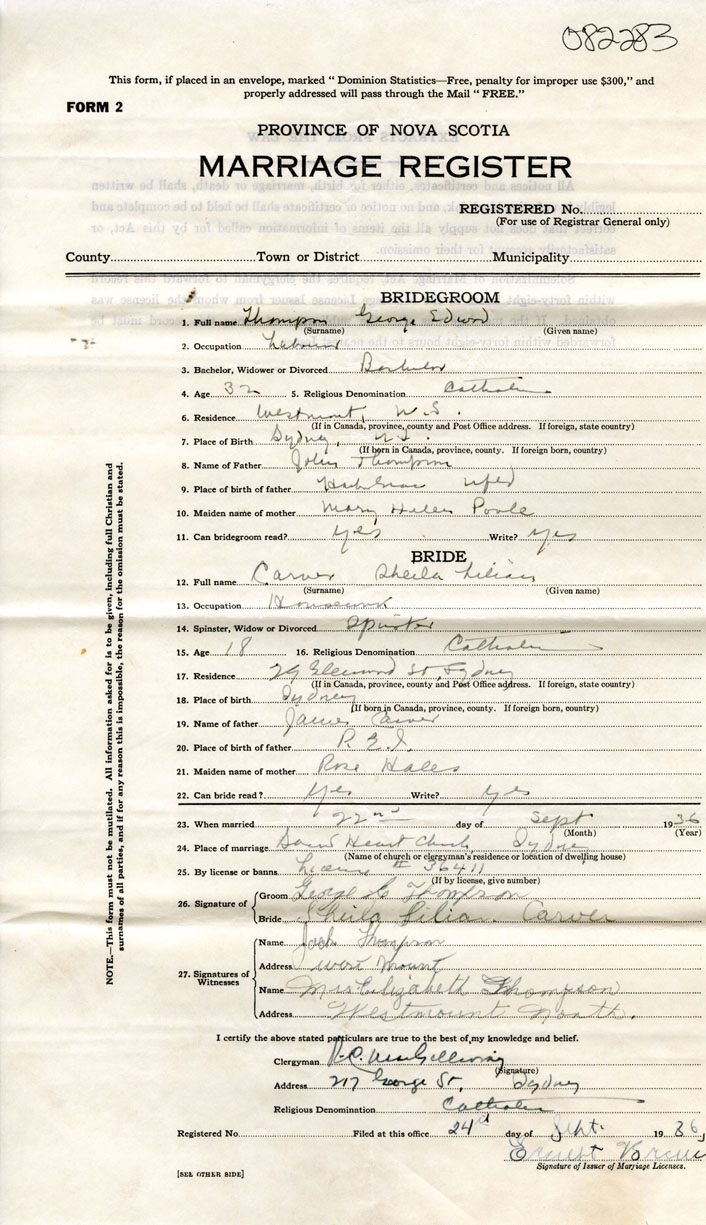 082283
This form, if placed in an envelope, marked "Dominion Statistics—Free, penalty for improper use $300," and
properly addressed will pass through the Mail "FREE."
FORM 2
PROVINCE OF NOVA SCOTIA
MARRIAGE REGISTER
REGISTERED No.
(For use of Registrar General only)
County Town or District Municipality
BRIDEGROOM
1. Full name Thompson George Edward
(Surname) (Given name)
2. Occupation Labourer
3. Bachelor, Widower or Divorced Bachelor
4. Age 32 5. Religious Denomination Catholic
6. Residence Westmount, N.S.
(If in Canada, province, county and Post Office address. If foreign, state country)
7. Place of Birth Sydney, N.S.
(If born in Canada, province, county. If foreign born, country)
8. Name of Father John Thompson
9. Place of birth of father Nfld
10. Maiden name of mother Mary Helen Poole
11. Can bridegroom read? yes Write? yes
BRIDE
12. Full name Carver Sheila Lilian
(Surname) (Given name)
13. Occupation Housework
14. Spinster, Widow or Divorced Spinster
15. Age 18 16. Religious Denomination Catholic
17. Residence 29 St, Sydney
(If in Canada, province, county and Post Office address. If foreign, state country)
18. Place of birth Sydney
(If born in Canada, province, county. If foreign born, country)
19. Name of father James Carver
20. Place of birth of father P.E.I.
21. Maiden name of mother Rose Hales
22. Can bride read? yes Write? yes
23. When married 22nd day of Sept 1936
(Month) (Year)
24. Place of marriage Sacred Heart Church, Sydney
(Name of church or clergyman's residence or location of dwelling house)
25. By license or banns License # 36411
(If by license, give number)
26. Signature of Groom George E Thompson
Bride Sheila Lilian Carver
27. Signatures of Witnesses
Name Jack Thompson
Address West Mount
Name Mrs Elizabeth Thompson
Address Westmount North.
I certify the above stated particulars are true to the best of my knowledge and belief.
Clergyman
(Signature)
Address 217 George St, Sydney
Religious Denomination Catholic
Registered No. Filed at this office 24th day of Sept. 1936
Ernest
Signature of Issuer of Marriage Licenses.
[SEE OTHER SIDE]
NOTE.—This form must not be mutilated. All information asked for is to be given, including full Christian and
surnames of all parties, and if for any reason this is impossible, the reason for the omission must be stated.